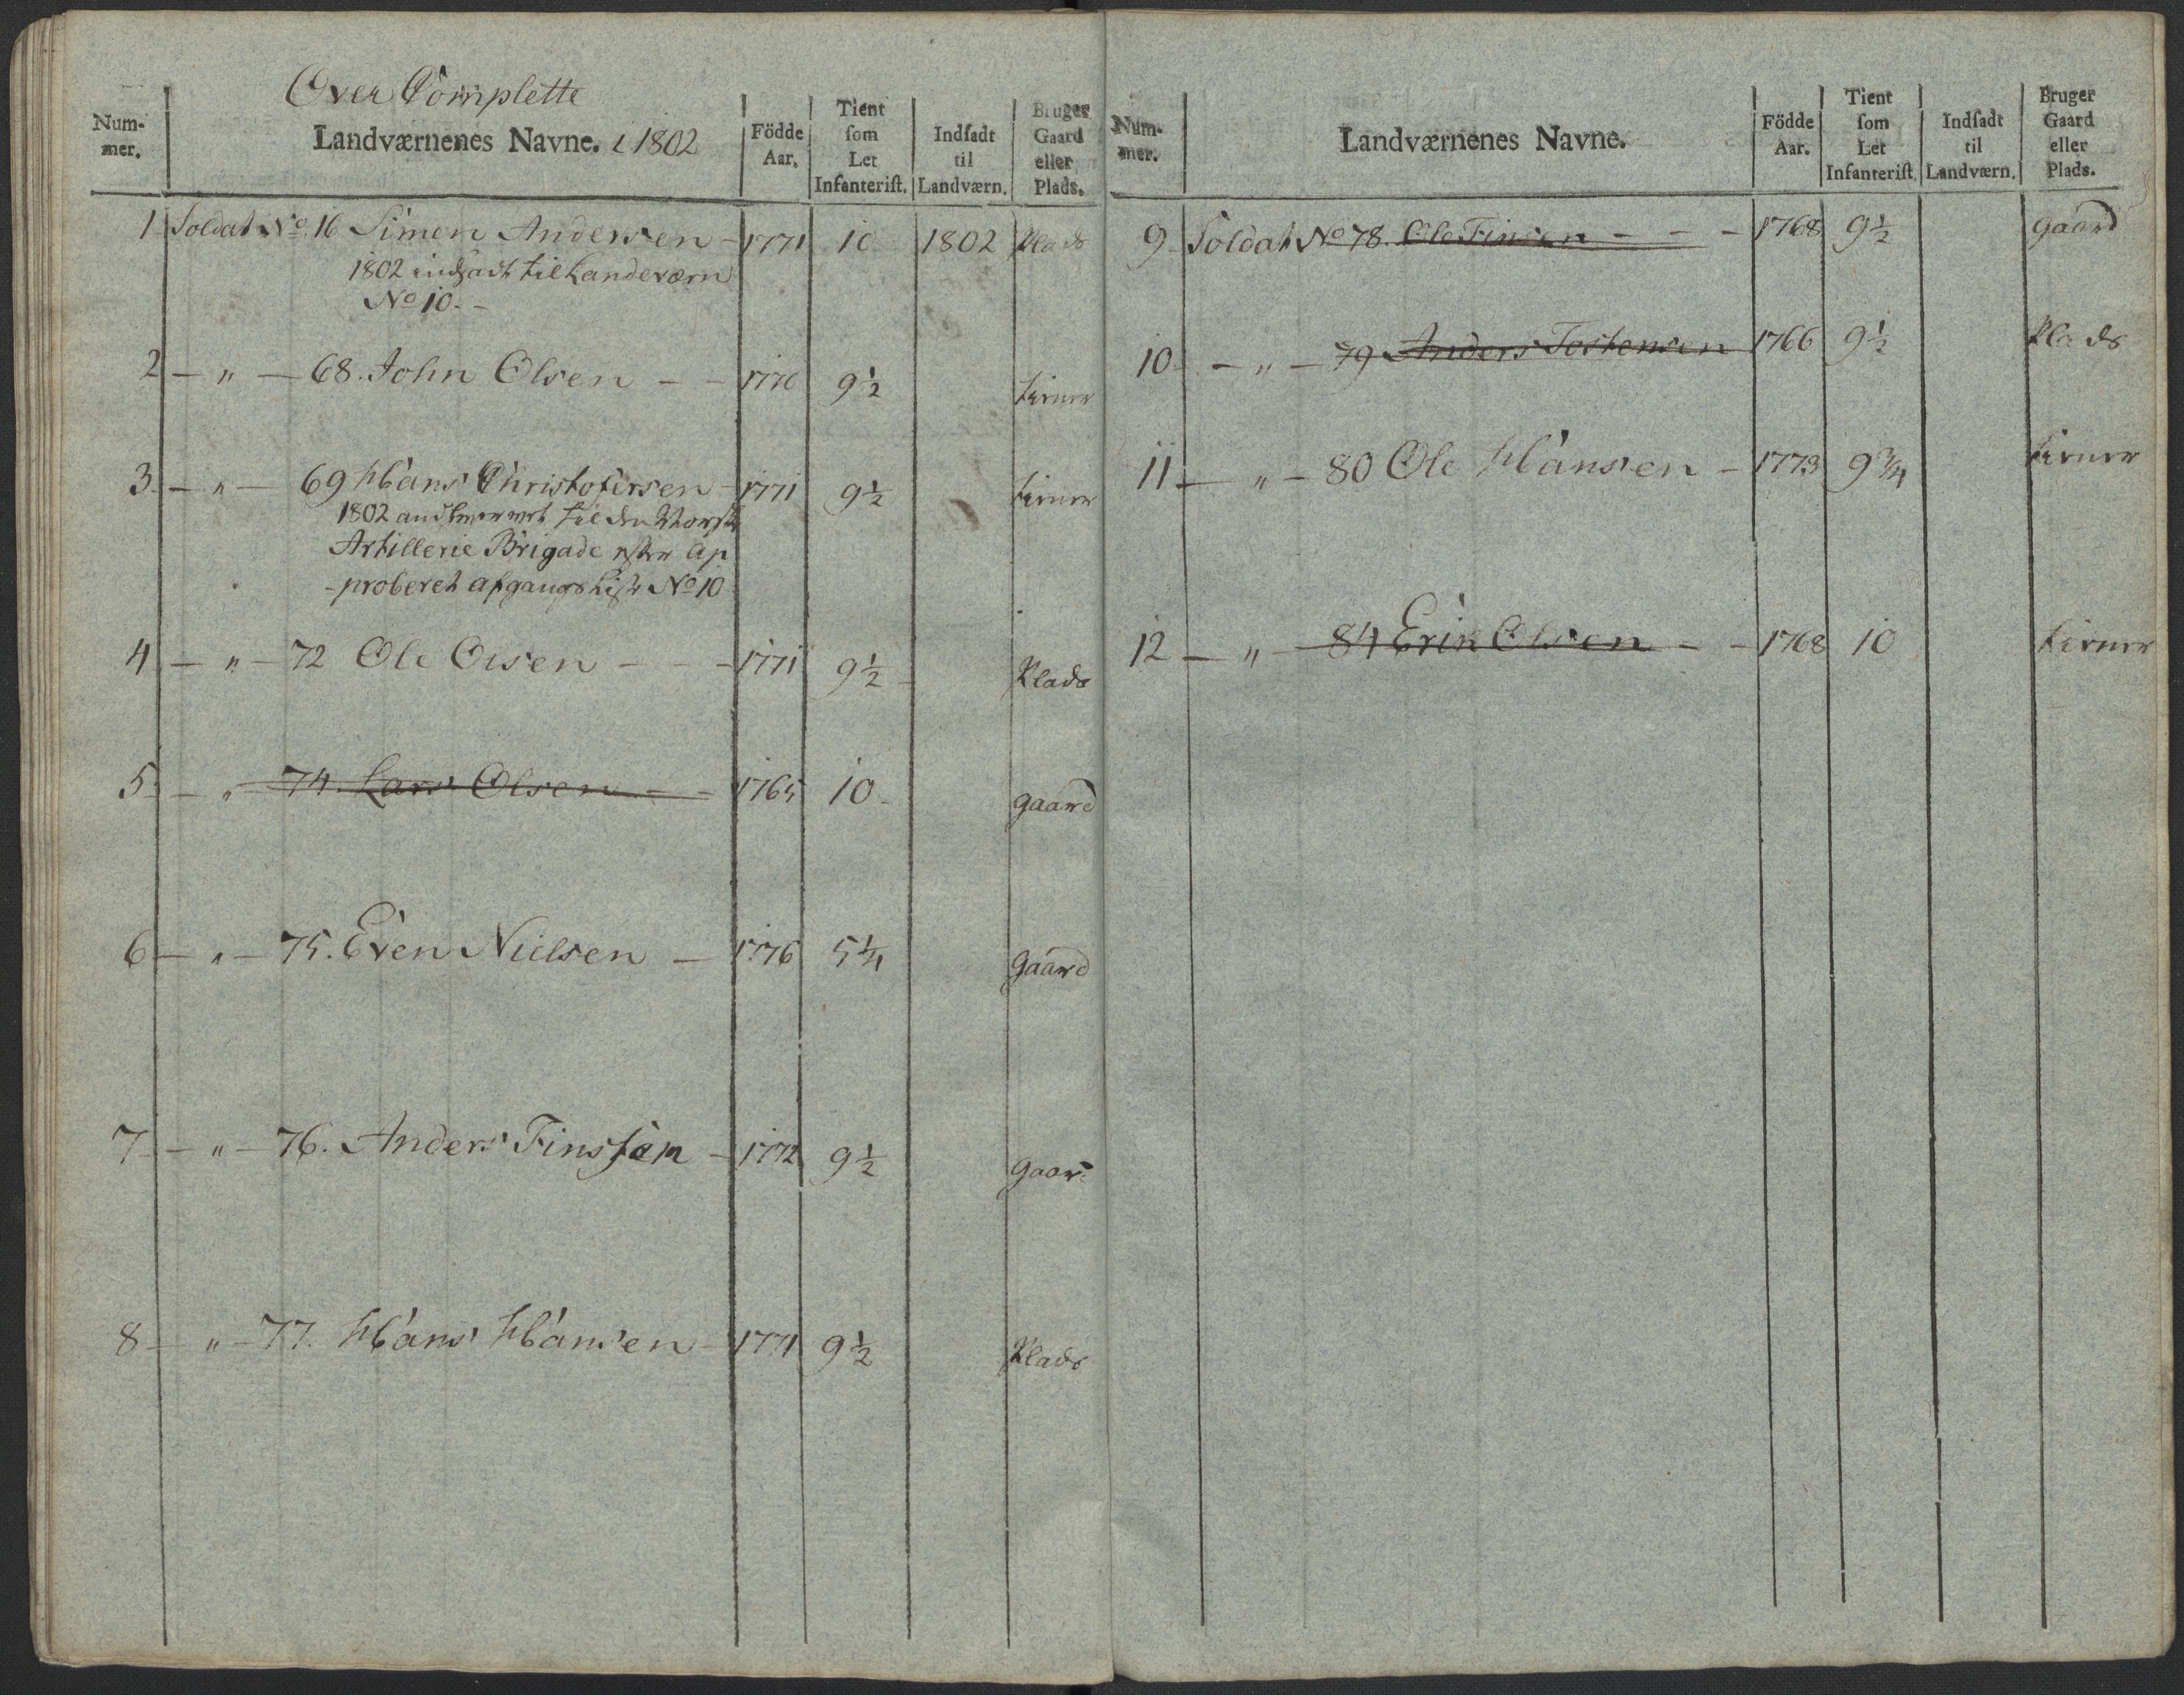 Over Complette
Num-
mer.
Landværnenes Navne. i 1802
Födde
Aar.
Tient
som
Let
Infanterist.
Indsadt
til
Landværn.
Bruger
Gaard
eller
Plads.
1 Soldat No. 16 Simen Andersen - 1771 10 1802 Plads
1802 indsadt til Landeværn
No 10. -
2 - " - 68. John Olsen - - 1770 9 1/2 tiener
3 - " - 69 Hans Christofersen - 1771 9 1/2 tiener
1802 til den Norske
Artillerie Brigade efter Ap
-proberet Afgangs Liste No 10
4 - " - 72 Ole Olsen - - - 1771 9 1/2 Plads
5 - " - 74. Lars Olsen - - 1765 10 gaard
6 - " - 75. Even Nielsen - 1776 5 1/4 gaard
7 - " - 76. Anders Finssøn - 1772 9 1/2 gaar
8 - " - 77. Hans Hansen - 1771 9 1/2 Plads
Num-
mer.
Landværnenes Navne.
Födde
Aar.
Tient
som
Let
Infanterist.
Indsadt
til
Landværn.
Bruger
Gaard
eller
Plads.
9 Soldat No 78. Ole Finsen - - - 1768 9 1/2 gaard
10 - " - 79 Anders Tostensen 1766 9 1/2 Plads
11 - " - 80 Ole Hansen - 1773 9 3/4 tiener
12 - " - 84 Erik Olsen - - 1768 10 tiener